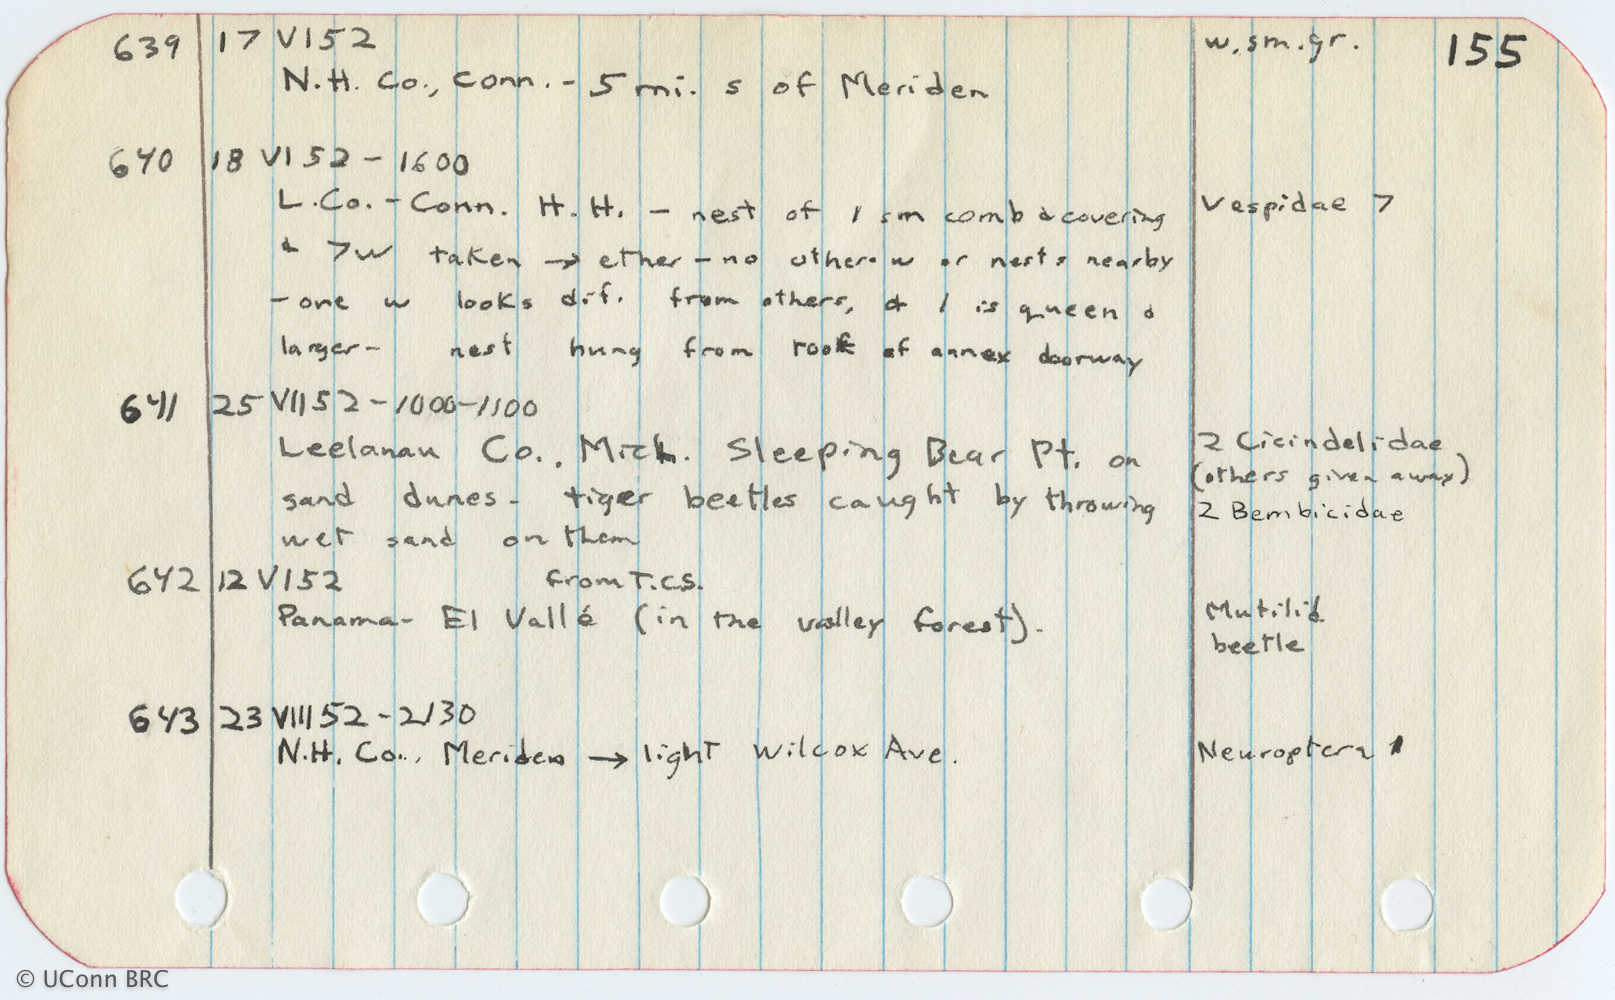 639 17 VI 52 w. sm. gr. 155
N.H. Co., Conn. - 5 mi. s of Meriden
640 18 VI 52 - 1600
L. Co. - Conn. H. H. - nest of 1 sm comb & covering Vespidae 7
& 7w taken → ether - no other w or nests nearby
- one w looks dif. from others, & 1 is queen &
larger - nest hung from roof of annex doorway
641 25 VII 52 - 1000-1100
Leelanau Co., Mich. Sleeping Bear Pt. on 2 Cicindelidae
(others given away)
sand dunes - tiger beetles caught by throwing 2 Bembicidae
wet sand on them
642 12 VI 52 from T.C.S.
Panama - El Vallé (in the valley forest). Mutilid
beetle
643 23 VIII 52 - 2130
N.H. Co., Meriden → light Wilcox Ave. Neuroptera 1
© UConn BRC